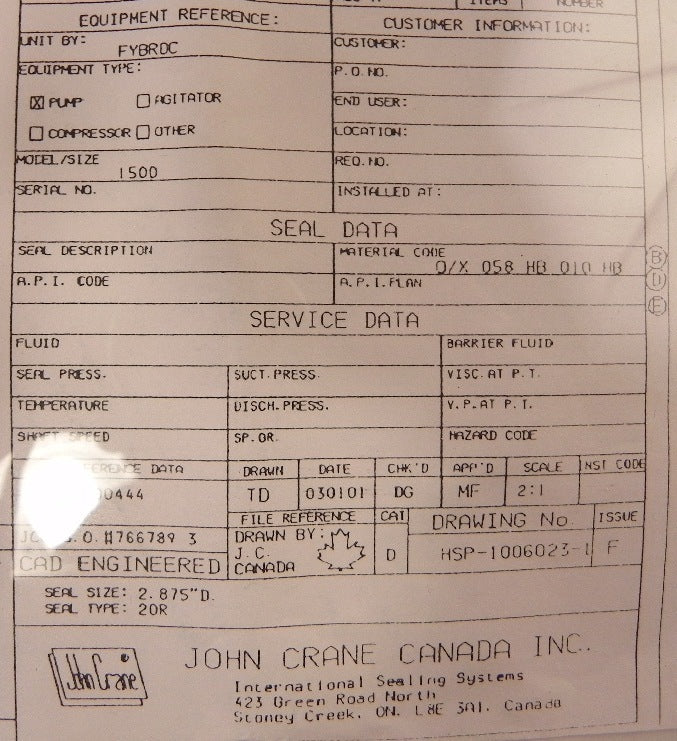 ITEMS NUMBER
EQUIPMENT REFERENCE: CUSTOMER INFORMATION:
UNIT BY: FYBROC CUSTOMER:
EQUIPMENT TYPE: P.O.NO.
☒ PUMP ☐ AGITATOR END USER:
☐ COMPRESSOR ☐ OTHER LOCATION:
MODEL/SIZE 1500 REQ.NO.
SERIAL NO. INSTALLED AT:
SEAL DATA
SEAL DESCRIPTION MATERIAL CODE O/X 058 HB 010 HB B
A.P.I. CODE A.P.I.PLAN D
E
SERVICE DATA
FLUID BARRIER FLUID
SEAL PRESS. SUCT.PRESS. VISC.AT P.T.
TEMPERATURE DISCH.PRESS. V.P.AT P.T.
SHAFT SPEED SP.GR. HAZARD CODE
DATA DRAWN DATE CHK'D APP'D SCALE NST CODE
00444 TD 030101 DG MF 2:1
FILE REFERENCE CAT DRAWING No. ISSUE
O.#766789 3 DRAWN BY: D HSP-1006023-1 F
J.C.
CAD ENGINEERED CANADA
SEAL SIZE: 2.875"D.
SEAL TYPE: 20R
John Crane JOHN CRANE CANADA INC.
International Sealing Systems
423 Green Road North
Stoney Creek, ON. L8E 3A1, Canada